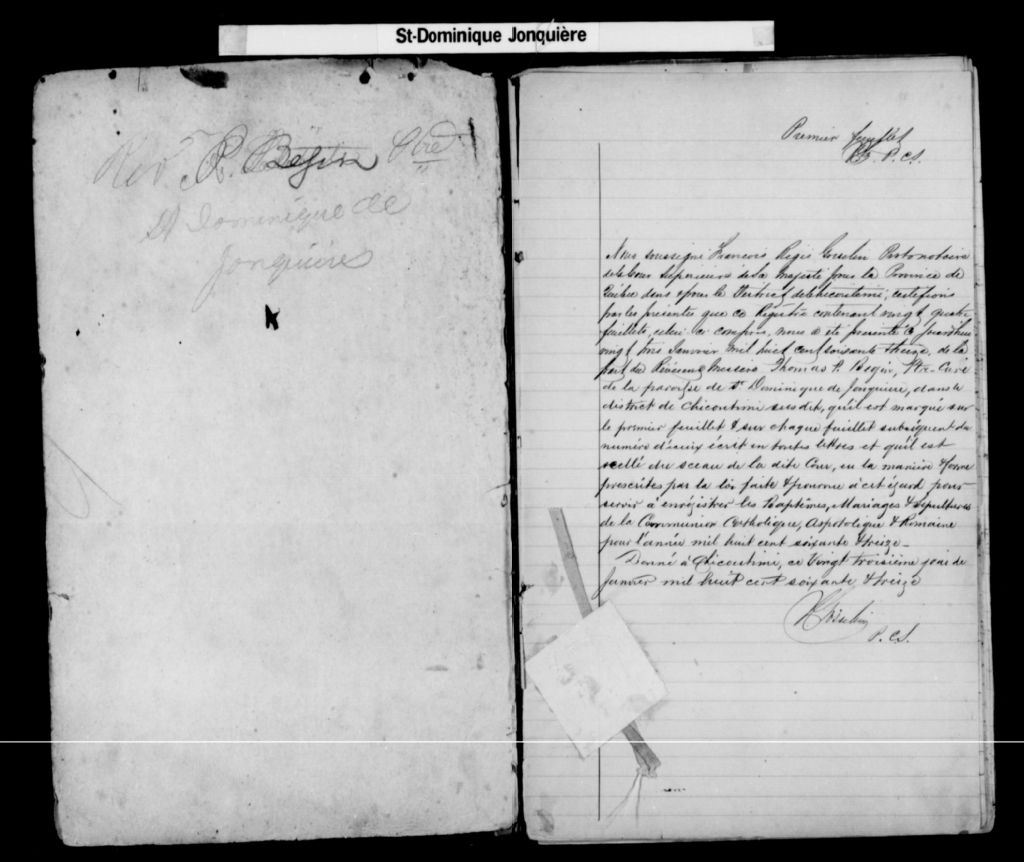 St-Dominique Jonquière
Rev. R. Bégin Ptre
St Dominique de
Jonquière
Premier feuillet
P.C.S.
Nous soussigné François Régis Gosselin Protonotaire
de la Cour Superieure de sa Majesté pour la Province de
Québec dans & pour le District de Chicoutimi, certifions
par les presentes que ce Régistre contenant vingt quatre
feuillets, celui-ci compris, nous a été presenté aujourdhui
vingt trois Janvier mil huit cent soixante & treize, de la
part du Révérend Messire Thomas R. Begin, Ptre-Curé
de la paroisse de St Dominique de Jonquière, dans le
district de Chicoutimi susdit, qu'il est marqué sur
le premier feuillet & sur chaque feuillet subséquent du
numéro d'iceux écrit en toutes lettres et qu'il est
scellé du sceau de la dite Cour, en la manière & forme
prescrites par la loi faite & pourvue à cet égard pour
servir à enrégistrer les Baptêmes, Mariages & Sépultures
de la Communion Catholique, Aspotolique & Romaine
pour l'année mil huit cent soixante & treize_
Donné à Chicoutimi, ce Vingt troisième jour de
Janvier mil huit cent soixante & treize
Gosselin
P.C.S.